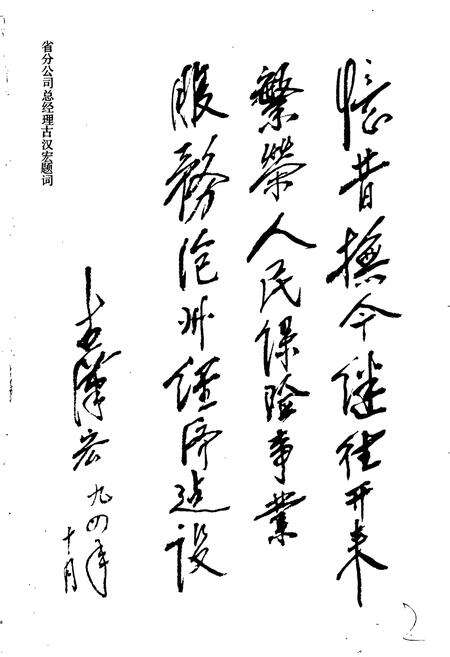 憶昔撫今继往开来
繁榮人民保险事業
服務沧州经济建设
古漢宏
九四年
十月
省分公司总经理古汉宏题词
2